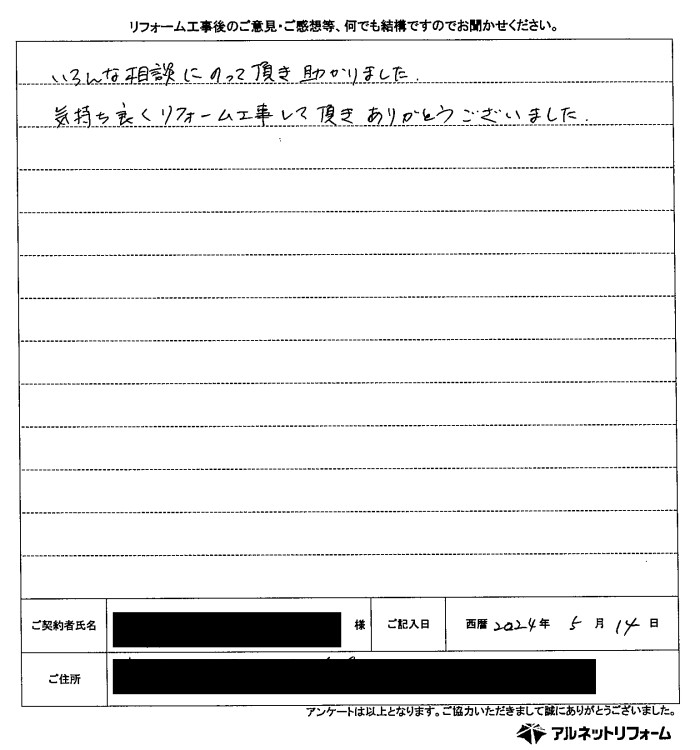 リフォーム工事後のご意見・ご感想等、何でも結構ですのでお聞かせください。
いろんな相談にのって頂き助かりました.
気持ち良くリフォーム工事して頂きありがとうございました.
ご契約者氏名 様 ご記入日 西暦 2024年 5月 14日
ご住所
アンケートは以上となります。ご協力いただきまして誠にありがとうございました。
アルネットリフォーム